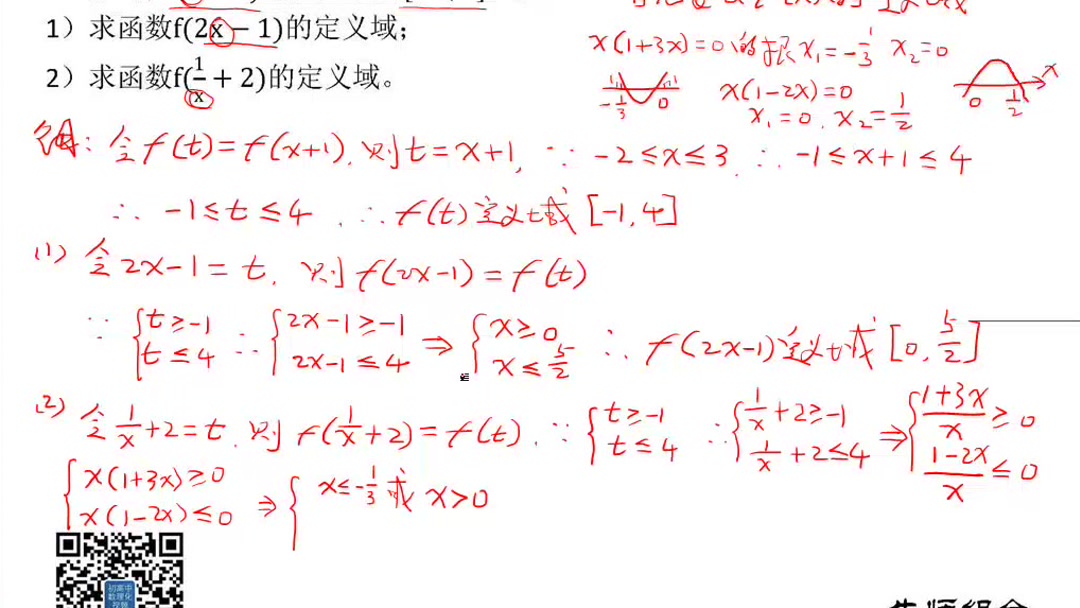 1）求函数f(2x−1)的定义域；
2）求函数f(1/x+2)的定义域。
x(1+3x)=0的根 x₁=-1/3 x₂=0
-1/3 0
x(1-2x)=0
x₁=0. x₂=1/2
0 1/2 x
解：令f(t)=f(x+1), 则t=x+1, ∵ -2≤x≤3. ∴ -1≤x+1≤4
∴ -1≤t≤4. ∴ f(t)定义域[-1,4]
(1) 令2x-1=t, 则f(2x-1)=f(t)
∵ {t≥-1 t≤4 ∴ {2x-1≥-1 2x-1≤4 ⇒ {x≥0 x≤5/2 ∴ f(2x-1)定义域[0,5/2]
(2) 令1/x+2=t, 则f(1/x+2)=f(t), ∵ {t≥-1 t≤4 ∴ {1/x+2≥-1 1/x+2≤4 ⇒ {(1+3x)/x≥0 (1-2x)/x≤0
{x(1+3x)≥0 x(1-2x)≤0 ⇒ { x≤-1/3 或 x>0
初高中
数理化
视频